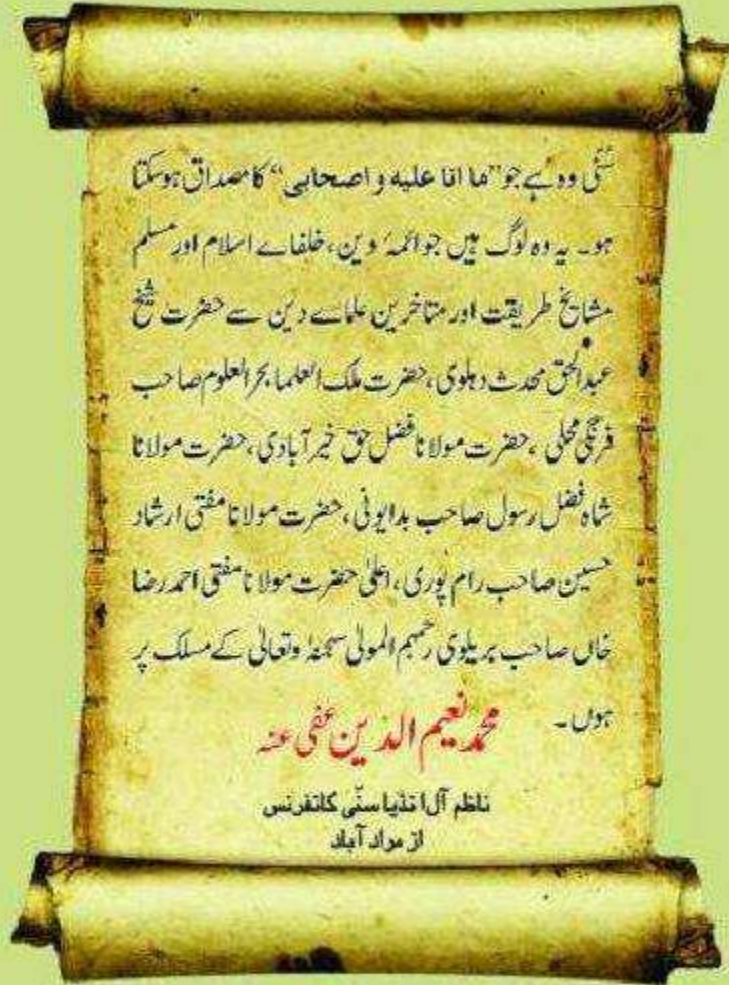 سُنّی وہ ہے جو "ما انا علیه و اصحابی" کا مصداق ہوسکتا
ہو۔ یہ وہ لوگ ہیں جو ائمہٴ دین، خلفاے اسلام اور مسلم
مشایخِ طریقت اور متاخرین علماے دین سے حضرت شیخ
عبدالحق محدث دہلوی، حضرت ملک العلما بحرالعلوم صاحب
فرنگی محلی، حضرت مولانا فضل حق خیر آبادی، حضرت مولانا
شاہ فضل رسول صاحب بدایونی، حضرت مولانا مفتی ارشاد
حسین صاحب رام پوری، اعلیٰ حضرت مولانا مفتی احمد رضا
خاں صاحب بریلوی رحمہم المولیٰ سبحٰنہٗ وتعالیٰ کے مسلک پر
ہوں۔
محمد نعیم الدین عفی عنہ
ناظم آل انڈیا سنّی کانفرنس
از مراد آباد